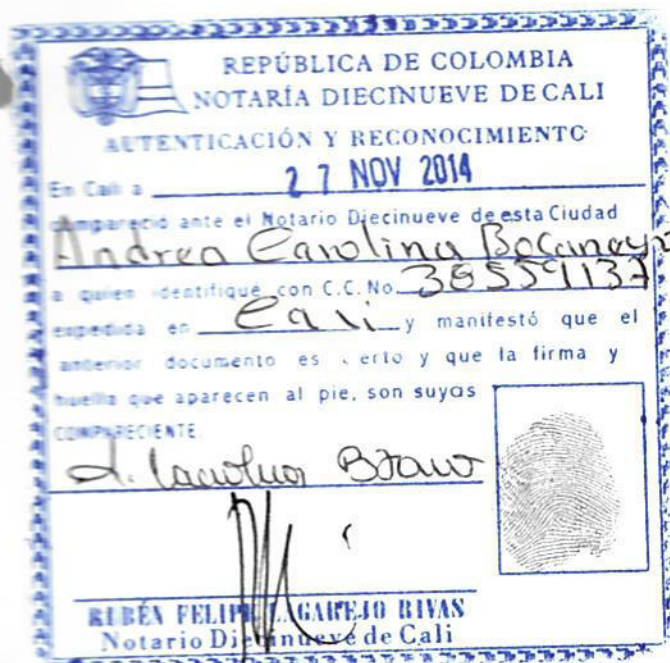 REPÚBLICA DE COLOMBIA
NOTARÍA DIECINUEVE DE CALI
AUTENTICACIÓN Y RECONOCIMIENTO
En Cali a 27 NOV 2014
compareció ante el Notario Diecinueve de esta Ciudad
Andrea Carolina
a quien identifiqué con C.C. No. 38559137
expedida en Cali y manifestó que el
anterior documento es cierto y que la firma y
huella que aparecen al pie, son suyas
COMPARECIENTE
RUBÉN FELIPE LAGAREJO RIVAS
Notario Diecinueve de Cali